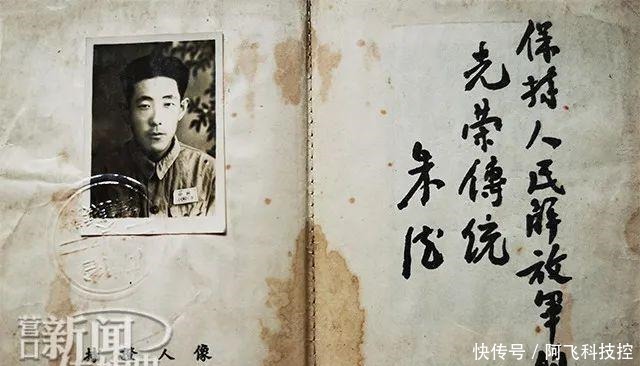 保持人民解放军的
光荣傳統
朱德
證人像
新闻
快传号 / 阿飞科技控